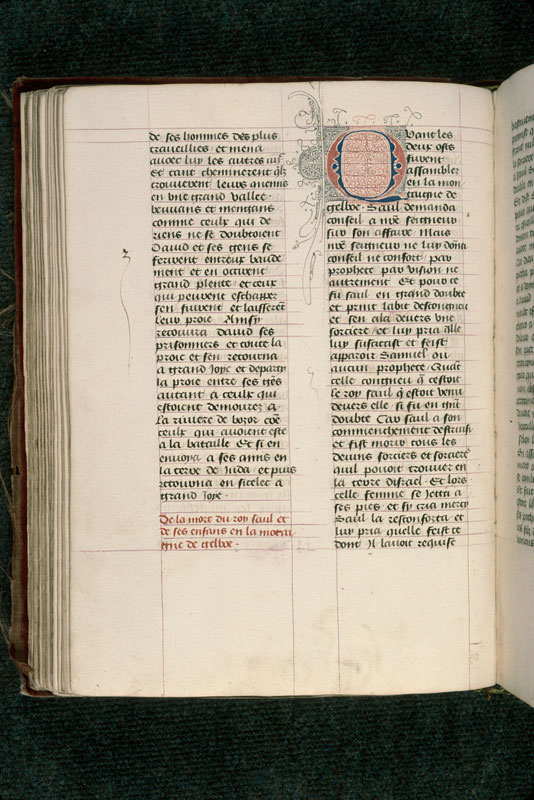 de ses hommes des plus
traveillies et mena
avoec luy les autres iiijᶜ
Et tant cheminerent qlz
trouverent leurs anemis
en une grand vallee
beuvans et mengans
comme ceulx qui de
riens ne se doubtoient
David et ses gens se
ferirent entreux baude
ment et en occirent
grand plente et ceux
qui peurent eschapper
sen fuirent et laisserent
leur proie Ainsy
recouvra david ses
prisonniers et toute la
proie et sen retourna
a grand joye et departy
la proie entre ses gēs
autant a ceulx qui
estoient demourez a
la riviere de bozor cōe
ceulx qui avoient este
a la bataille Et si en
envoya a ses amis en
la terre de Juda et puis
retourna en siceleć a
grand joye.
De la mort du roy saul et
de ses enfans en la montai
gne de gelboe.
Quant les
deux osts
furent
assamblez
en la mon
taigne de
gelboe. Saul demanda
conseil a nr̄e seigneur
sur son affaire Mais
nr̄e seigneur ne luy dōna
conseil ne confort par
prophete par vision ne
autrement Et pour ce
fu saul en grand doubte
et print labit descongneu
et sen ala devers une
sorciere et luy pria qlle
luy suscitast et feist
apparoir Samuel ou
aucun prophete Quāt
celle congneu q̄ cestoit
le roy saul q̄ estoit venu
devers elle si fu en gr̄t
doubte Car saul a son
commenchement destruist
et fist morir tous les
devins sorciers et sorcieres
quil pouoit trouver en
la terre disrael Et lors
celle femme se jetta a
ses pies et sy cria mercy
Saul la resconforta et
luy pria quelle feist ce
dont Il lavoit requise